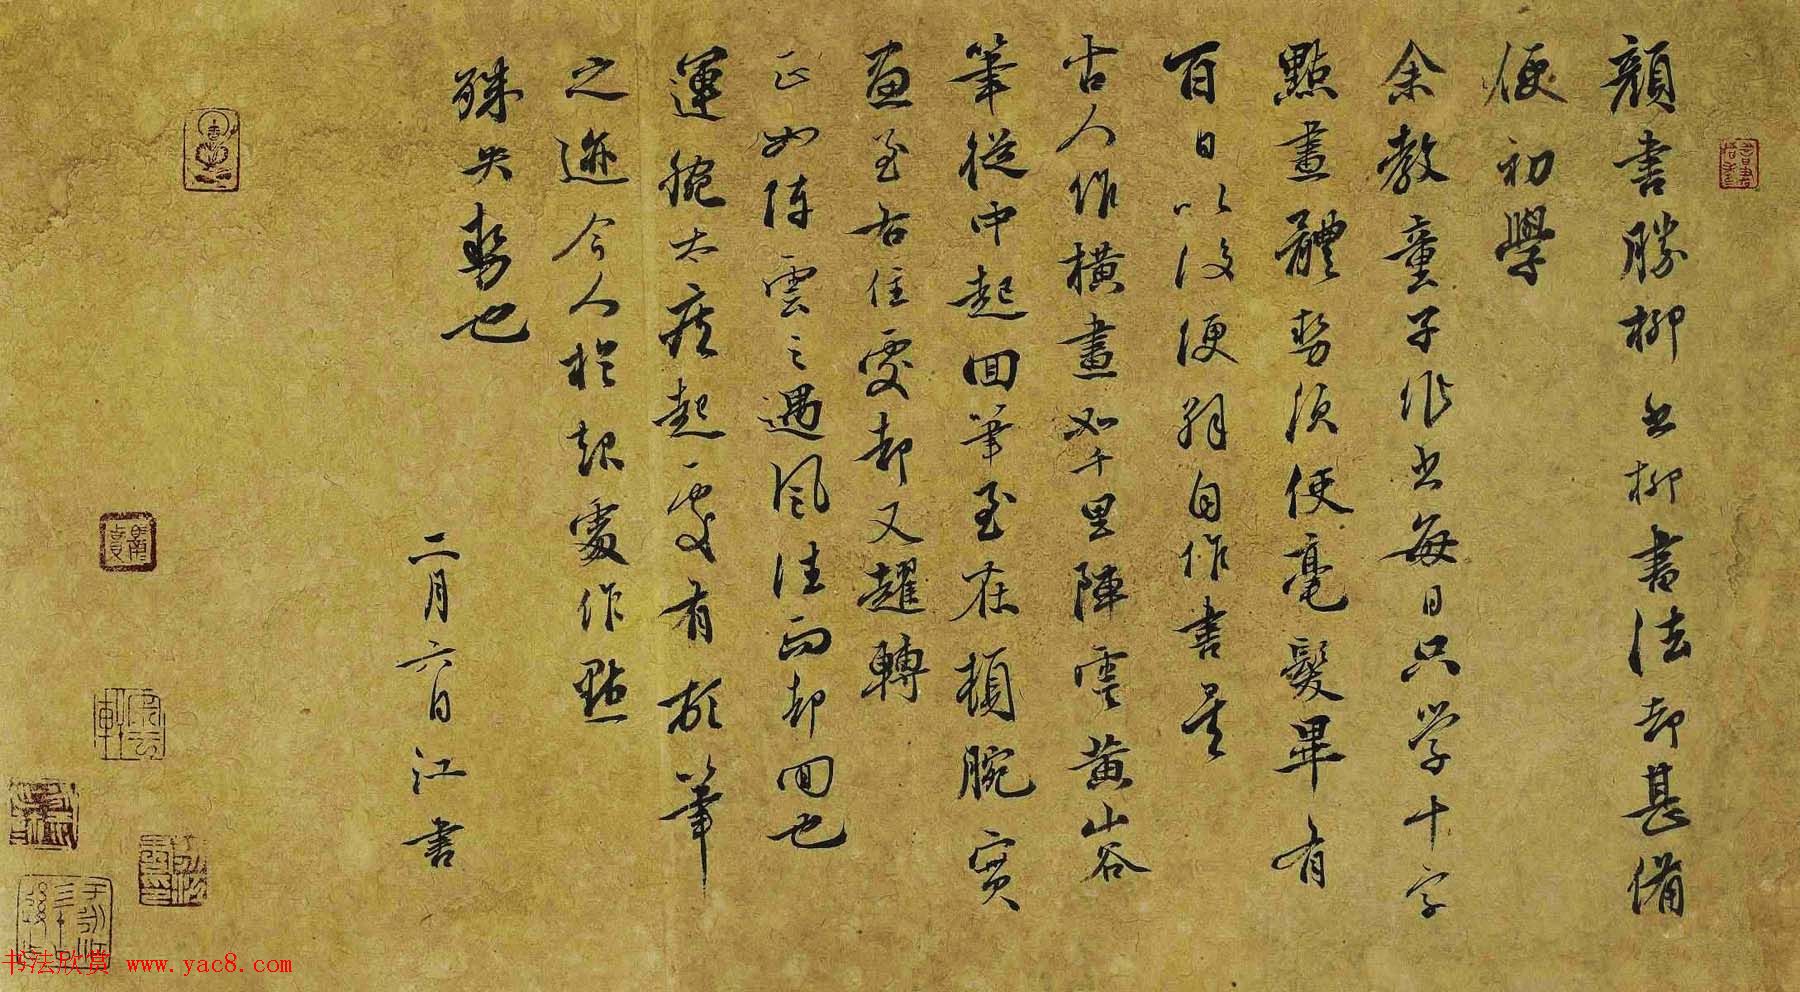 顔書勝柳書柳書法却甚備
便初學
余教童子作書每日只学十字
點畫體勢須使毫髮畢有
百日以後便解自作書矣
古人作橫畫如千里陣雲黃山谷
筆從中起回筆至左頓腕實
畫至右住處却又趯轉
正如陣雲之遇風往而却回也
運腕太疾起處有頓筆
之迹今人於起處作點
殊失勢也
二月六日江書
书法欣赏 www.yac8.com